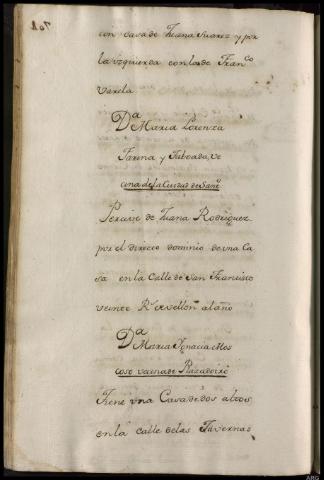 con Casa de Juana Suarez y por
la izquierda con la de Fran.co
Varela
Da Maria Lorenza
Farina y Taboada, ve
cina de la Ciudad de Sant.
Percive de Juana Rodriguez
por el directo dominio de una Ca
sa en la Calle de San Francisco
veinte Rs. de vellon al año
Da Maria Ignacia Mos
coso vecina de
Tiene una Casa de dos altos
en la Calle de las Tavernas
ARG